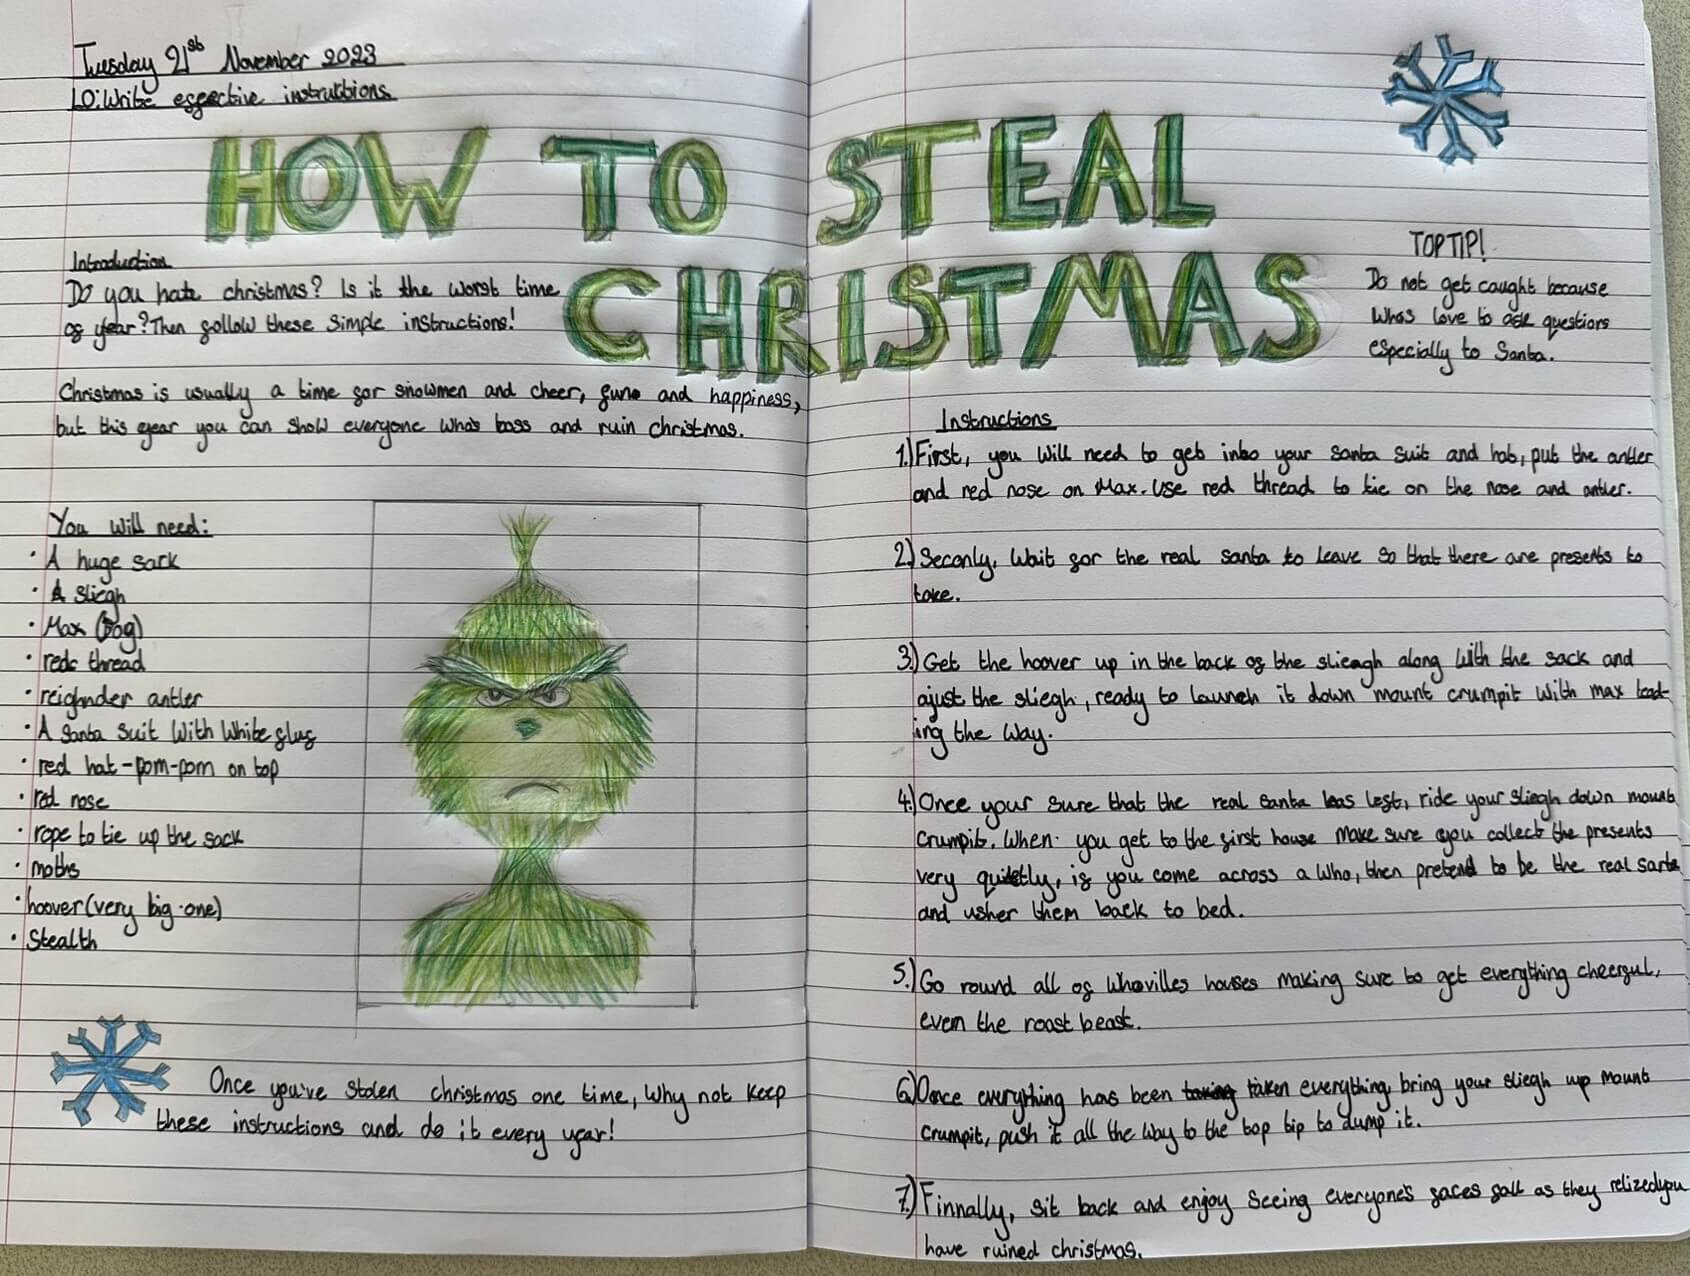 Tuesday 21st November 2023
LO: Write effective instructions
HOW TO STEAL
CHRISTMAS
Introduction
Do you hate christmas? Is it the worst time
of year? Then follow these simple instructions!
Christmas is usually a time for snowmen and cheer, fun and happiness,
but this year you can show everyone whos boss and ruin christmas.
You will need:
• A huge sack
• A sliegh
• Max (Dog)
• red thread
• reignder antler
• A santa suit with white fluf
• red hat - pom-pom on top
• red nose
• rope to tie up the sack
• moths
• hoover (very big one)
• Stealth
Once you've stolen christmas one time, why not keep
these instructions and do it every year!
TOP TIP!
Do not get caught because
Whos love to ask questions
especially to Santa.
Instructions
1.) First, you will need to get into your santa suit and hat, put the antler
and red nose on Max. Use red thread to tie on the nose and antler.
2.) Seconly, wait for the real santa to leave so that there are presents to
take.
3.) Get the hoover up in the back of the slieagh along with the sack and
ajust the sliegh, ready to launch it down mount crumpit with max lead-
ing the way.
4.) Once your sure that the real santa has left, ride your sliegh down mount
crumpit. When you get to the first house make sure you collect the presents
very quietly, if you come across a Who, then pretend to be the real santa
and usher them back to bed.
5.) Go round all of Whovilles houses making sure to get everything cheerful,
even the roast beast.
6.) Once everything has been taking taken everything, bring your sliegh up mount
crumpit, push it all the way to the top tip to dump it.
7.) Finnally, sit back and enjoy seeing everyone's faces fall as they relized you
have ruined christmas.